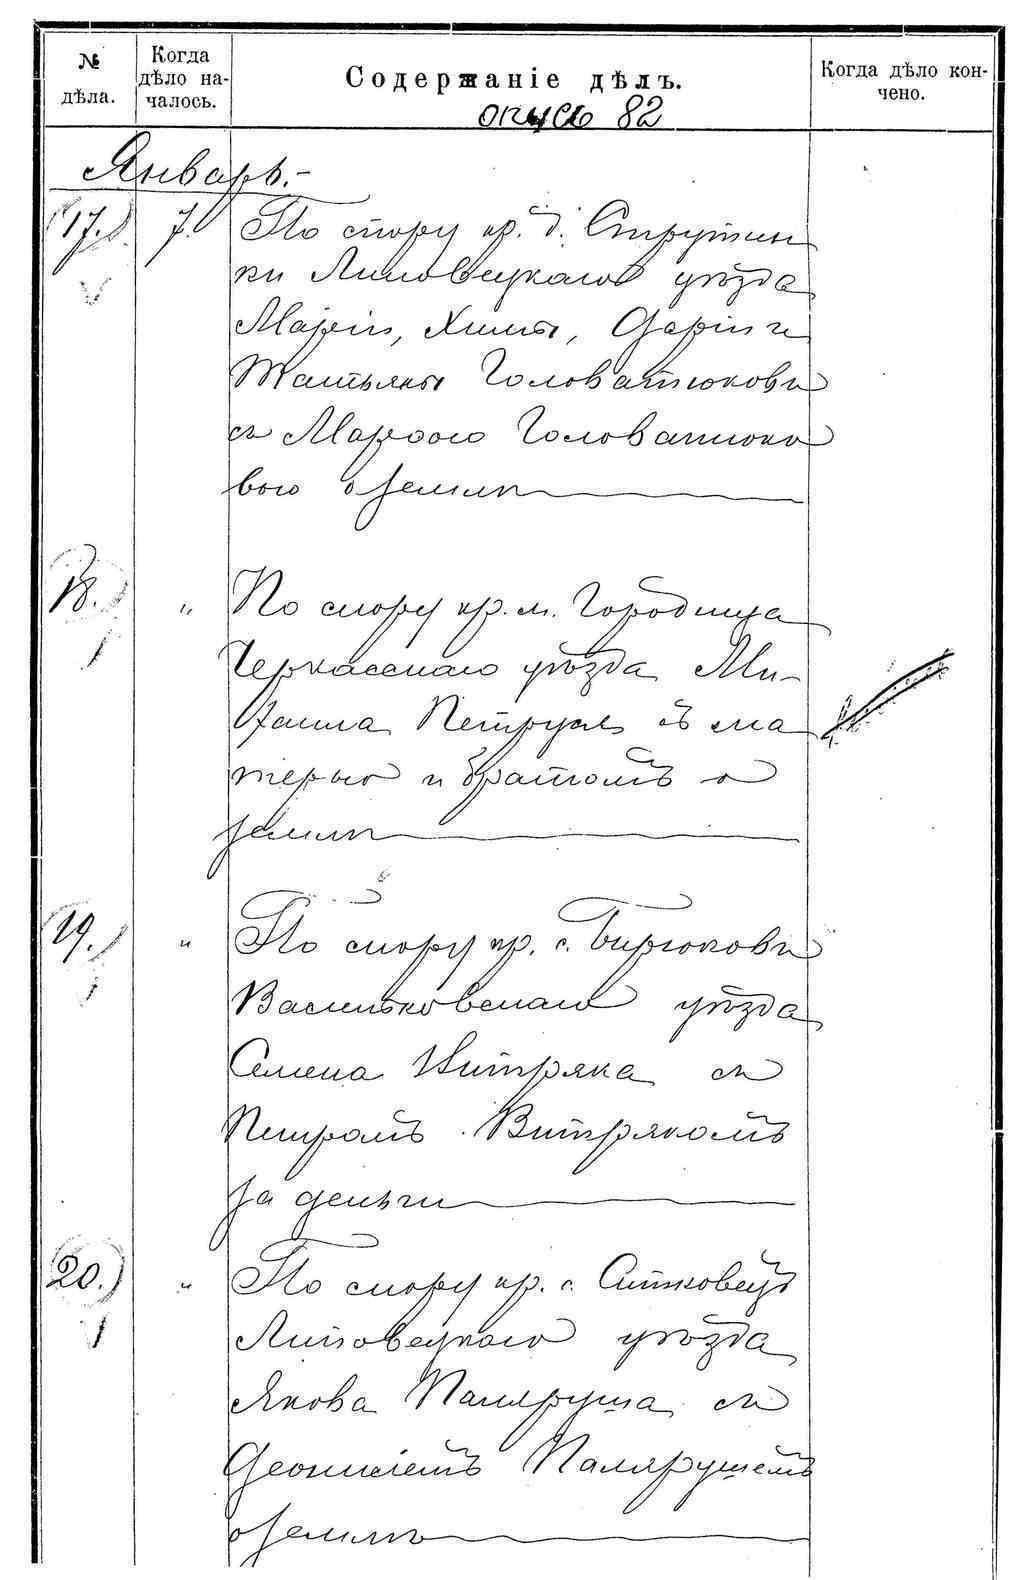 № дѣла.
Когда дѣло на-
чалось.
Содержаніе дѣлъ.
Когда дѣло кон-
чено.
опись 82
Январь.-
17. 7. По спору кр. д. Струтин
ки Липовецкаго уѣзда
Маріи, Химы, Даріи и
Татьяны Головатюковы
съ Марѳою Головатюко
вою о землѣ
18. " По спору кр. м. Городища
Черкасскаго уѣзда Ми-
хаила Петруся съ ма
терью и братомъ о
землѣ
19. " По спору кр. с. Бирюковъ
Васильковскаго уѣзда
Семена Витряка съ
Петромъ Витрякомъ
за деньги
20. " По спору кр. с. Ситковецъ
Липовецкаго уѣзда
Якова Паляруша съ
Діонисіемъ Палярушемъ
о землѣ